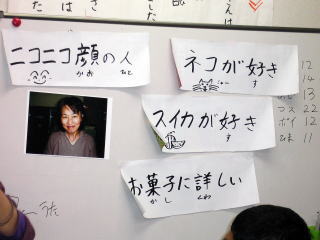 ニコニコ顔の人
かお ひと
ネコが好き
す
スイカが好き
す
お菓子に詳しい
かし くわ
12
14
13
22
12
11
うた